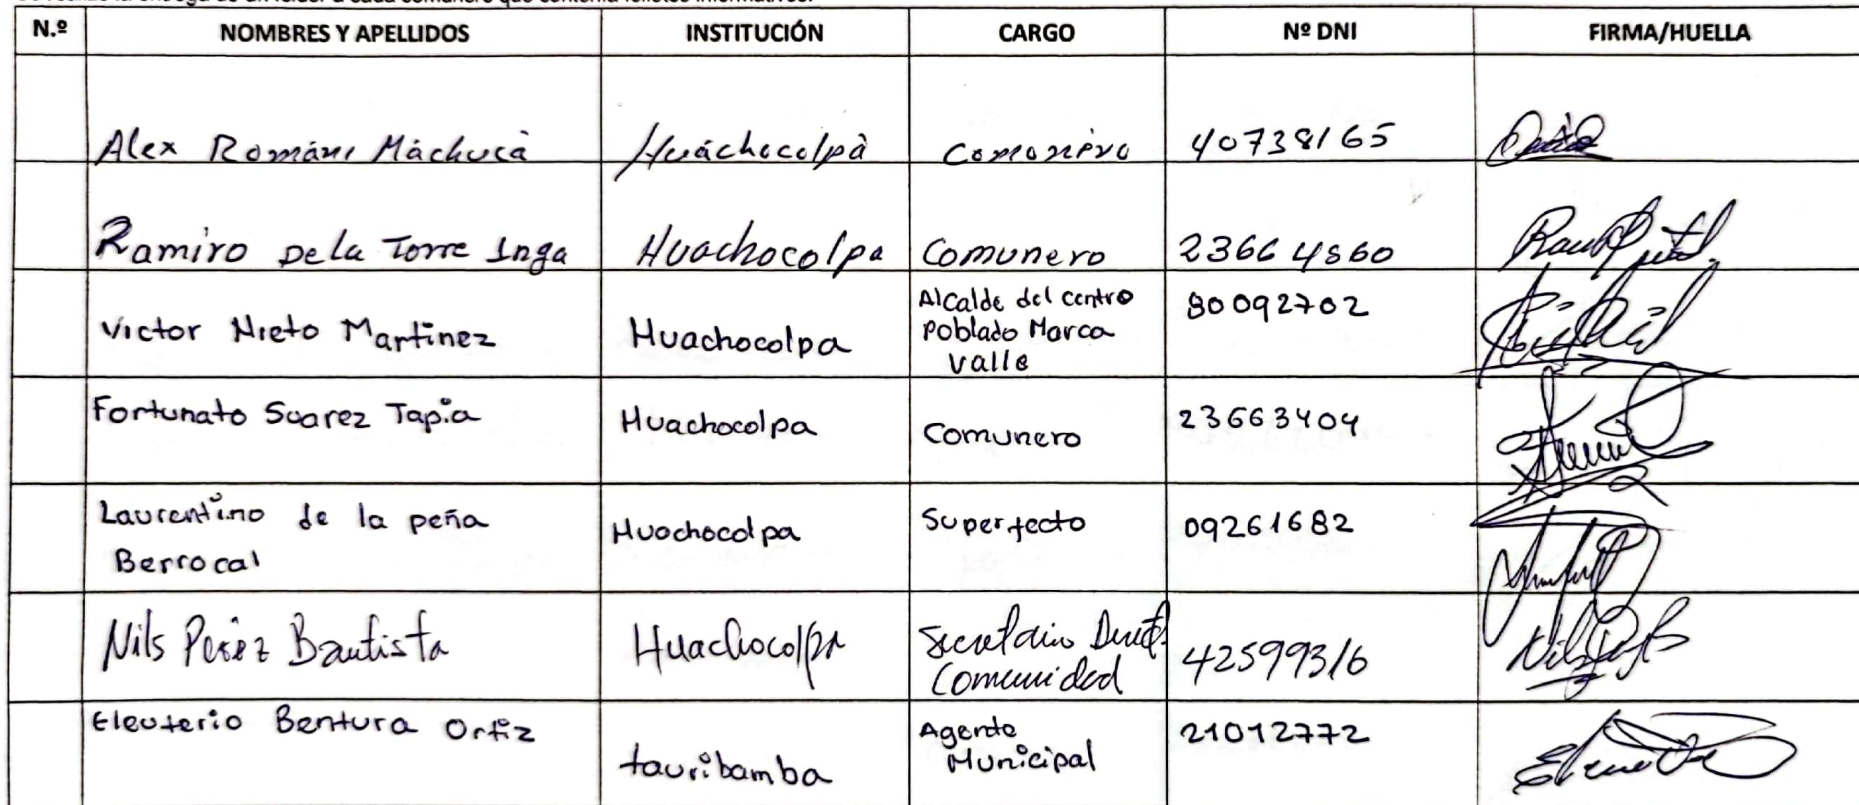 N.º NOMBRES Y APELLIDOS INSTITUCIÓN CARGO Nº DNI FIRMA/HUELLA
Alex Román Máchuca Huáchocolpà Comonero 40738165
Ramiro De la Torre Inga Huachocolpa Comunero 23664860
Victor Nieto Martinez Huachocolpa Alcalde del centro 80092702
Poblado Marca
Valle
Fortunato Suarez Tapia Huachocolpa Comunero 23663404
Laurentino de la peña Huachocolpa Superfecto 09261682
Berrocal
Nils Pérez Bautista Huachocolpa Secretario 42599316
Comunidad
Eleuterio Bentura Ortiz tauribamba Agente 21012772
Municipal